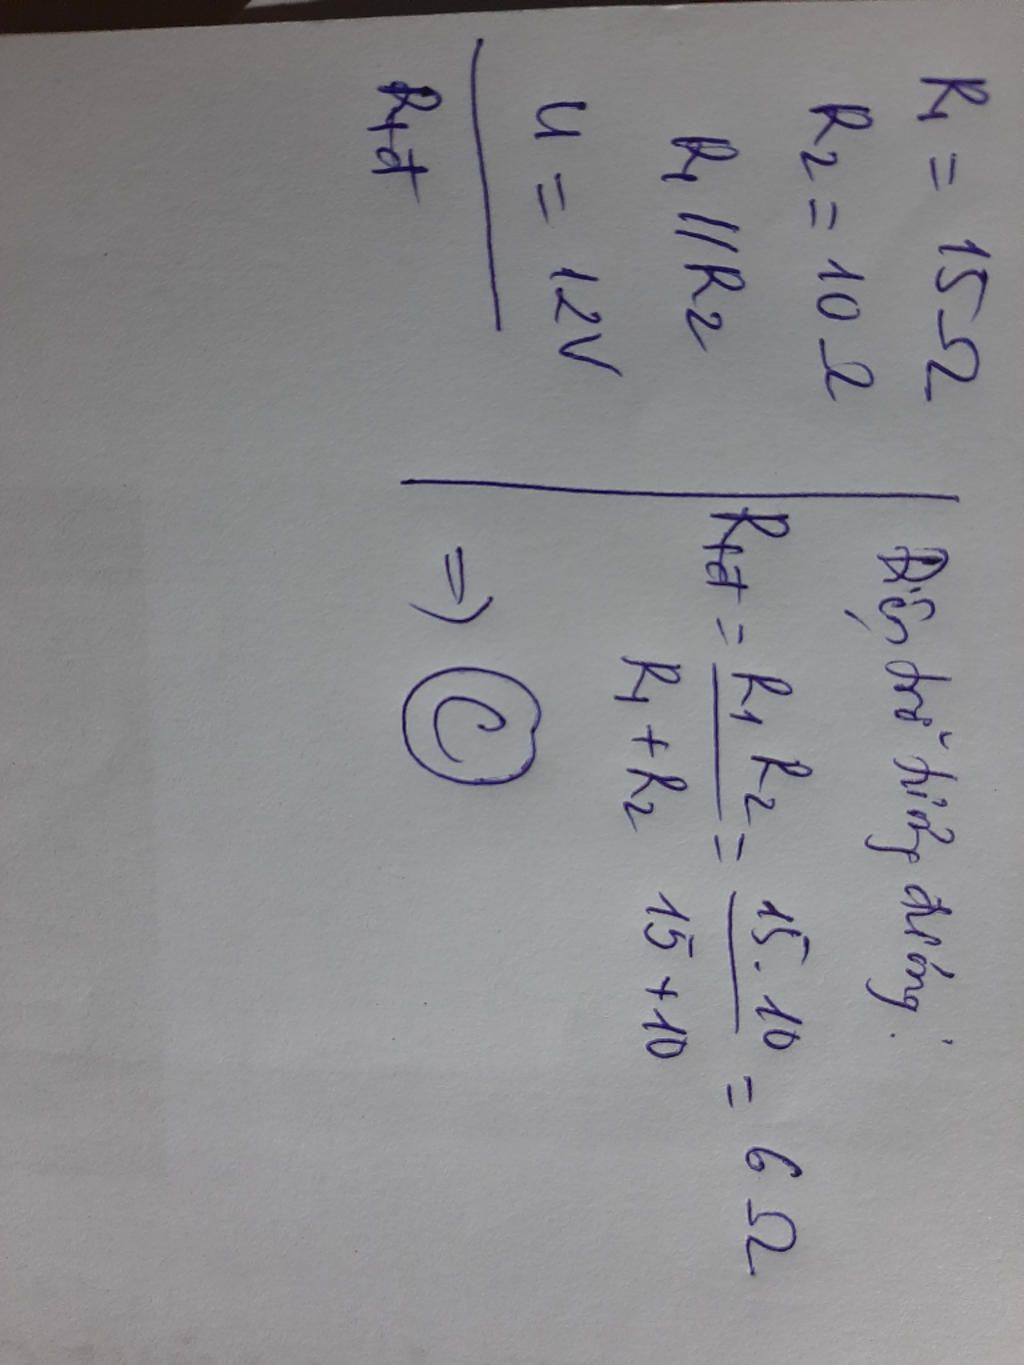 R₁ = 15Ω
R₂ = 10Ω
R₁ // R₂
U = 12V
Rtđ
Điện trở tương đương:
Rtđ = R₁R₂ = 15.10 = 6Ω
R₁+R₂ 15+10
=> C